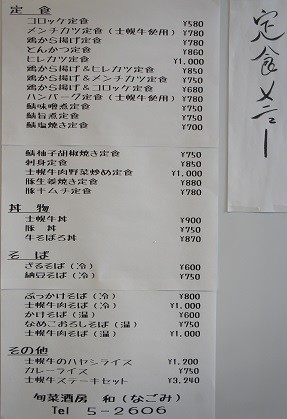 定食
コロッケ定食 ¥580
メンチカツ定食（士幌牛使用） ¥780
鶏から揚げ定食 ¥780
とんかつ定食 ¥860
ヒレカツ定食 ¥1,000
鶏から揚げ＆ヒレカツ定食 ¥850
鶏から揚げ＆メンチカツ定食 ¥750
鶏から揚げ＆コロッケ定食 ¥680
ハンバーグ定食（士幌牛使用） ¥780
鯖味噌煮定食 ¥750
鯖旨煮定食 ¥750
鯖塩焼き定食 ¥700
鯖柚子胡椒焼き定食 ¥750
刺身定食 ¥850
士幌牛肉野菜炒め定食 ¥1,000
豚生姜焼き定食 ¥880
豚キムチ定食 ¥780
丼物
士幌牛丼 ¥900
豚丼 ¥750
牛そぼろ丼 ¥870
そば
ざるそば（冷） ¥600
納豆そば（冷） ¥750
ぶっかけそば（冷） ¥800
士幌牛肉そば（冷） ¥1,000
かけそば（温） ¥600
なめこおろしそば（温） ¥750
士幌牛肉そば（温） ¥1,000
その他
士幌牛のハヤシライス ¥1,200
カレーライス ¥750
士幌牛ステーキセット ¥3,240
旬菜酒房 和（なごみ）
Tel 5-2606
定食メニュー